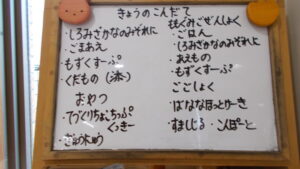 きょうのこんだて
しろみざかなのみぞれに
・ごまあえ
もずくすーぷ
くだもの
おやつ
てづくりちょこちっぷ
くっきー
・ぎゅうにゅう
ももぐみごぜんしょく
・ごはん
しろみざかなのみぞれに
・あえもの
・もずくすーぷ
ごごしょく
ばななほっとけーき
すましじる・こんぽーと